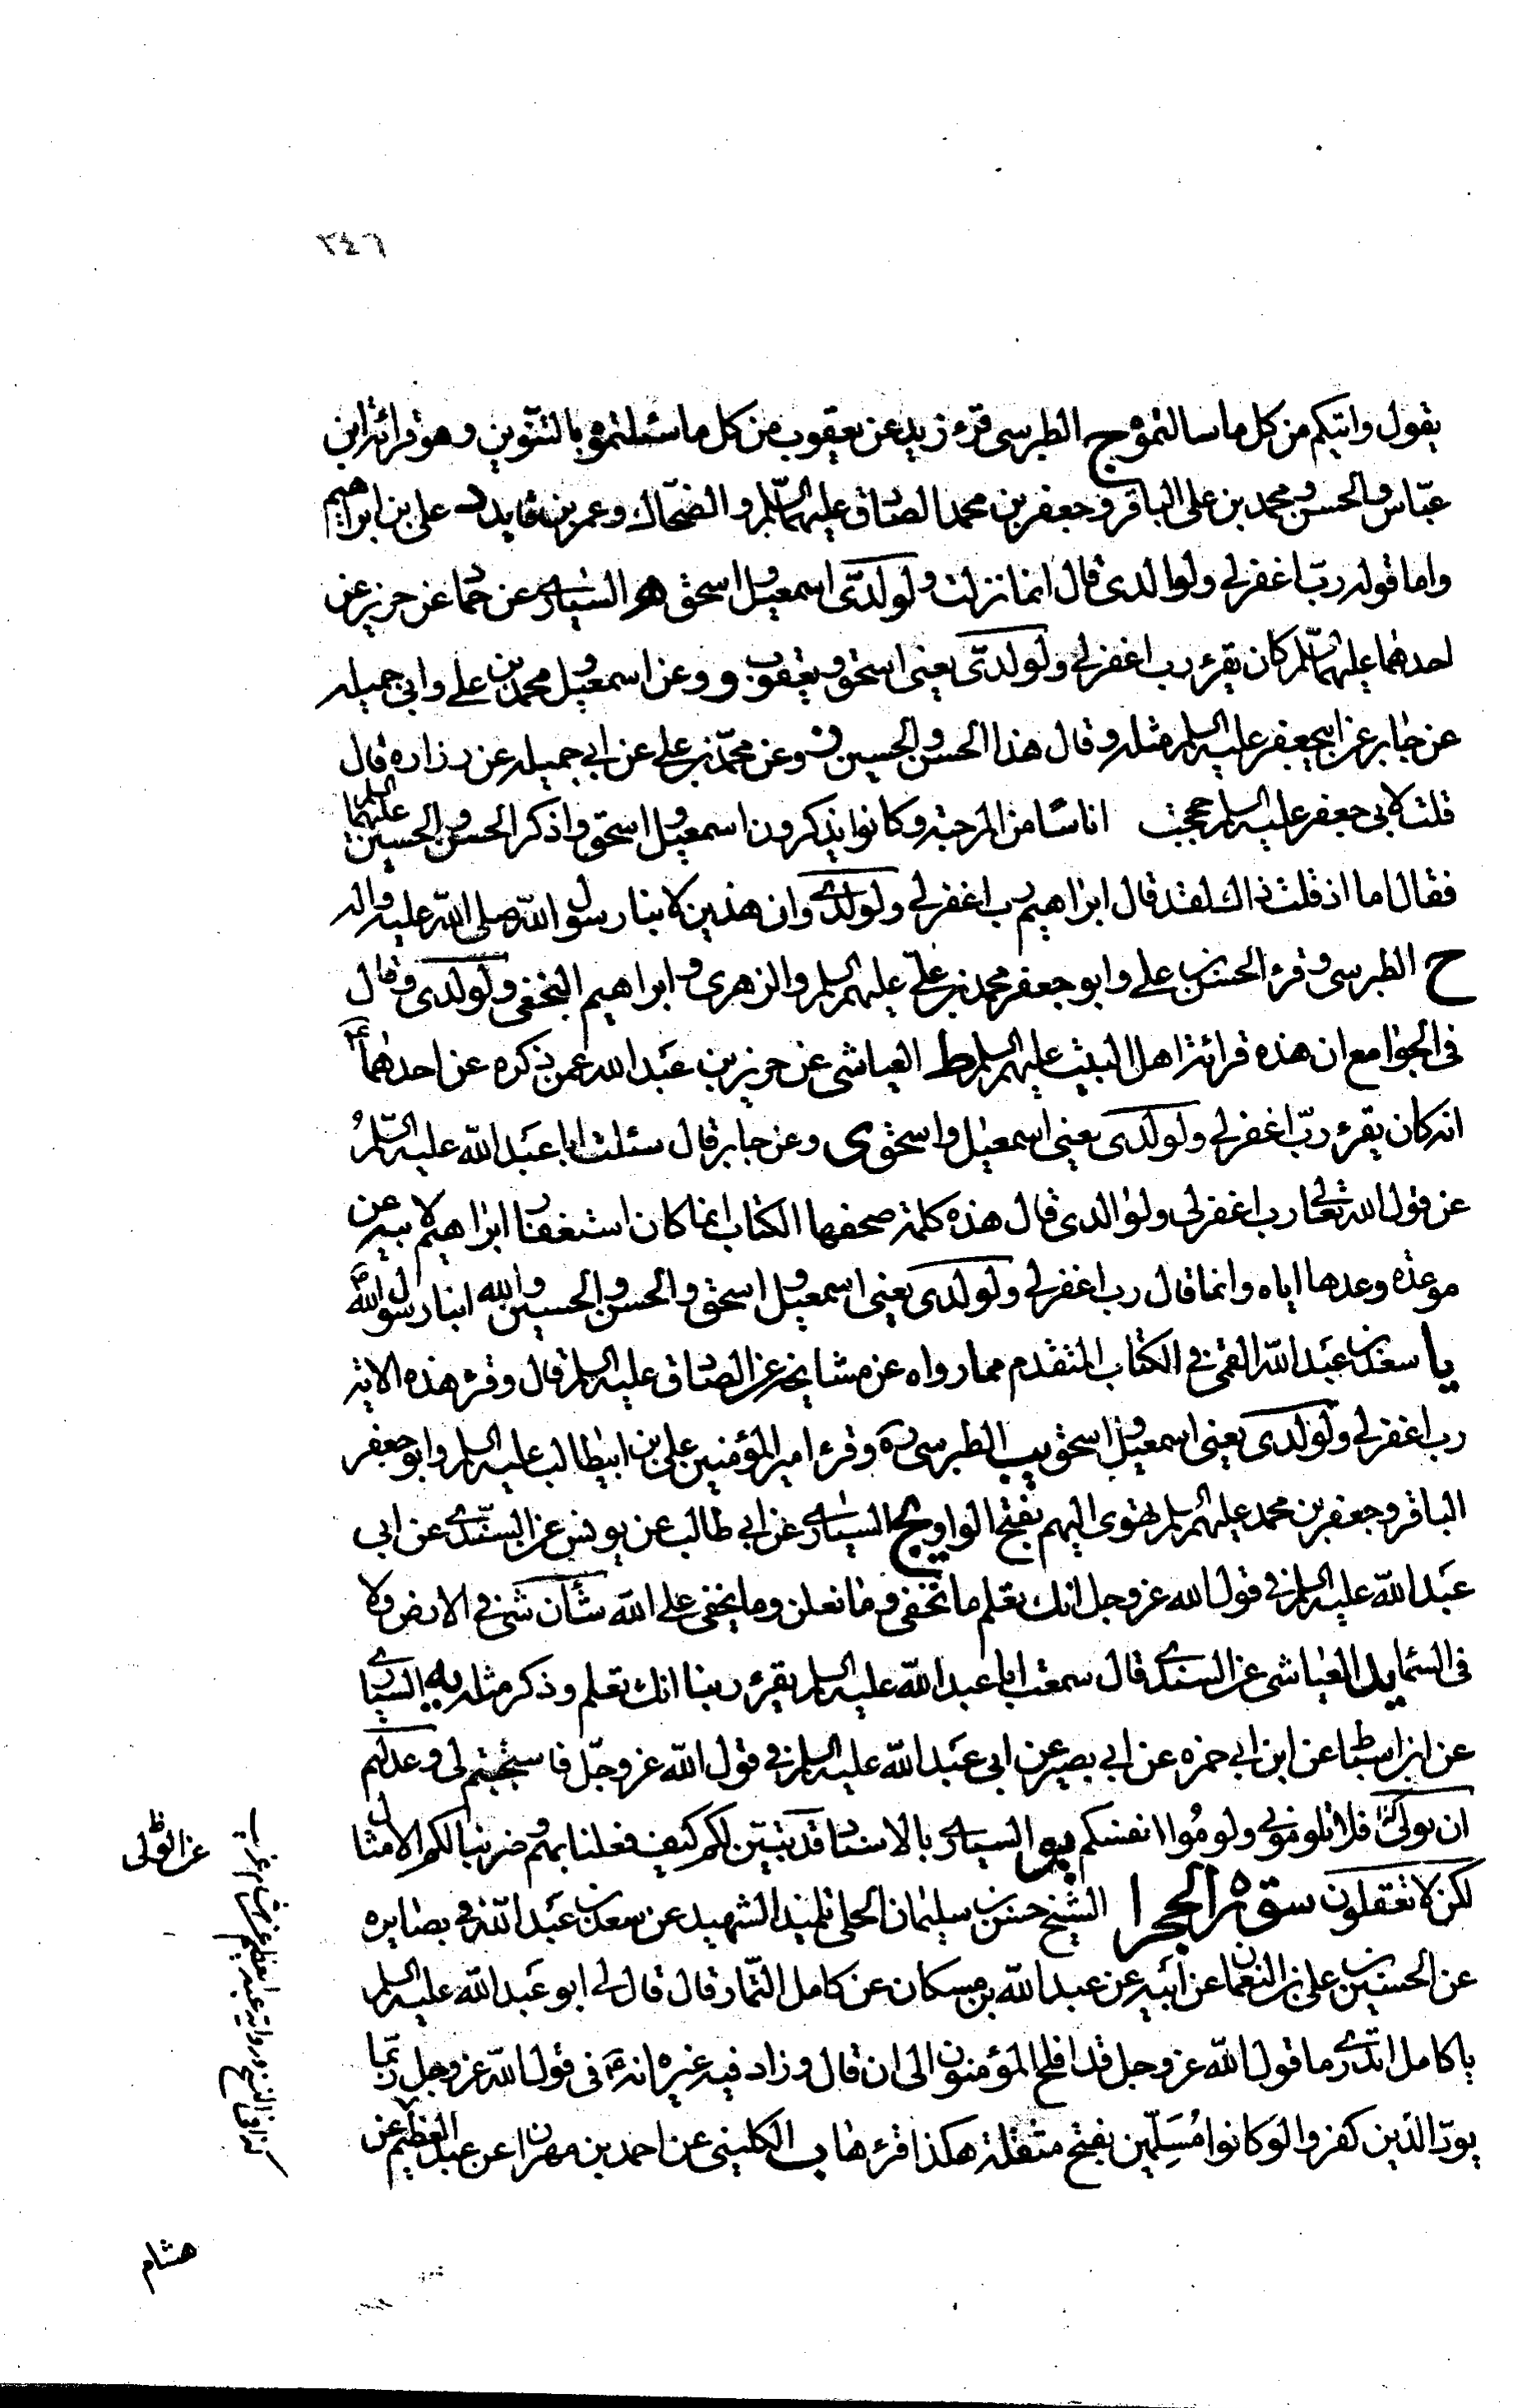 ٢٤٦
يقول واتيكم من كل ما سالتموه ج الطبرسي قرء زيد عن يعقوب من كل ما سئلتموه بالتنوين وهو قرائة ابن
عبّاس والحسن ومحمد بن علي الباقر وجعفر بن محمد الصادق عليهما السلم والضحاك وعمر بن قايد د علي بن ابراهيم
واما قوله ربّ اغفر لي ولوالدي قال انما نزلت ولولدىّ اسمعيل واسحق هـ السياري عن حماد عن حريز عن
احدهما عليهما السلم كان يقرء رب اغفر لي ولولدىّ يعني اسحق ويعقوب و وعن اسمعيل ومحمد بن علي وابي جميله
عن جابر عن ابيجعفر عليه السلم مثله وقال هذا الحسن والحسين ز وعن محمّد بن علي عن ابي جميله عن زراره قال
قلت لابي جعفر عليه السلم حججت اناسًا من المرجئه وكانوا يذكرون اسمعيل واسحق واذكر الحسن والحسين عليهما السلم
فقال اما اذ قلت ذاك لقد قال ابراهيم رب اغفر لي ولولدي وان هذين لابنا رسول الله صلى الله عليه واله
ح الطبرسي وقرء الحسن بن علي وابو جعفر محمد بن عليّ عليهم السلم والزهري وابراهيم النخعي ولولدى وقال
في الجوامع ان هذه قرائة اهل البيت عليهم السلم ط العياشي عن حريز بن عبد الله عمن ذكره عن احدهما ع
انه كان يقرء ربّ اغفر لي ولولدى يعني اسمعيل واسحق ى وعن جابر قال سئلت ابا عبد الله عليه السّلم
عن قول الله تعالى رب اغفر لي ولوالدي قال هذه كلمة صحفها الكتاب انما كان استغفار ابراهيم لابيه عن
موعدة وعدها اياه وانما قال رب اغفر لي ولولدى يعني اسمعيل واسحق والحسن والحسين والله ابنا رسول الله ص
يا سعد بن عبد الله القمي في الكتاب المتقدم مما رواه عن مشايخه عن الصادق عليه السلم قال وقرء هذه الاية
رب اغفر لي ولولدى يعني اسمعيل واسحق يب الطبرسي ره وقرء امير المؤمنين علي بن ابيطالب عليه السلم وابو جعفر
الباقر وجعفر بن محمد عليهم السلم تهوى اليهم بفتح الواو يج السياري عن ابي طالب عن يونس عن السنّدي عن ابي
عبد الله عليه السلم في قول الله عز وجل انك تعلم ما نخفي وما نعلن وما يخفى على الله شأن شئ في الارض ولا
في السماء يد العياشي عن السندي قال سمعت ابا عبد الله عليه السلم يقرء ربنا انك تعلم وذكر مثله يه السياري
عن ابن اسباط عن ابن ابي حمزه عن ابي بصير عن ابي عبد الله عليه السلم في قول الله عز وجلّ فاستجبتم لي وعدلتم
فلا تلوموني ولوموا انفسكم يو السياري بالاسناد قد تبيّن لكم كيف فعلنا بهم وضربنا لكم الامثال
لكن لا تعقلون سورة الحجر ا الشيخ حسن بن سليمان الحلي تلميذ الشهيد عن سعد بن عبد الله في بصايره
عن الحسين بن علي بن النعمان عن ابيه عن عبد الله بن مسكان عن كامل التمّار قال قال لي ابو عبد الله عليه السلم
يا كامل اتدري ما قول الله عز وجل قد افلح المؤمنون الى ان قال وزاد فيه غيره انه ع في قول الله عز وجل ربّما
يودّ الذين كفروا لو كانوا مُسَلّمين بفتح مثقلة هكذا قرءها ب الكليني عن احمد بن مهران عن عبد العظيم عن
هشام